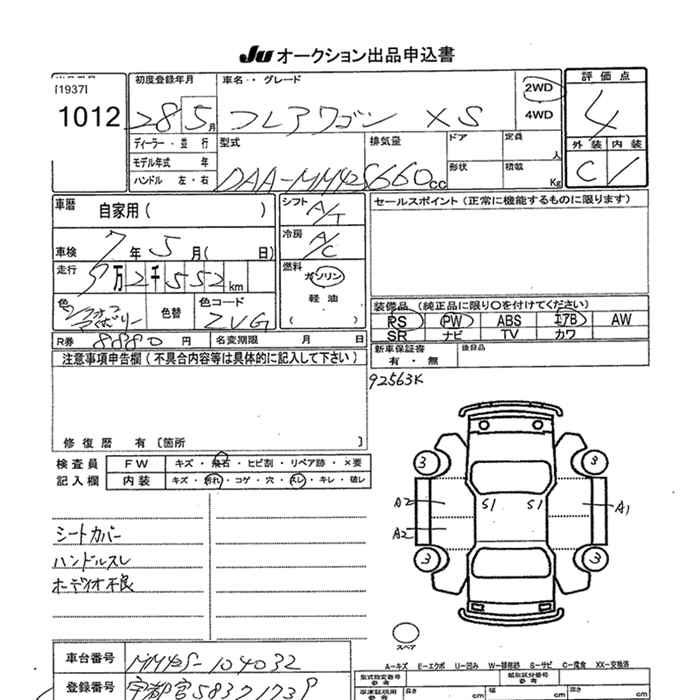 Ju オークション出品申込書
[1937]
1012
初度登録年月 車名・・グレード
28 5月 フレアワゴン XS
2WD
4WD
評価点
4
外装 内装
C
ディーラー・並行
モデル年式 年
ハンドル 左・右
型式
DAA-MM42S
排気量
660cc
ドア 定員
人
形状 積載
Kg
車暦
自家用( )
車検 7年5月( 日)
走行 9万2千552km
色
色替
色コード
ZVG
シフト
A/T
冷房
A/C
燃料
ガソリン
軽油
( )
セールスポイント(正常に機能するものに限ります)
装備品(純正品に限り○を付けてください)
PS PW ABS エアB AW
SR ナビ TV カワ
新車保証書 後録品
有・無
R券 8880円 名変期限 月 日
注意事項申告欄(不具合内容等は具体的に記入して下さい)
92563K
修復暦 有〔箇所 〕
検査員 FW キズ・飛石・ヒビ割・リペア跡・×要
記入欄 内装 キズ・汚れ・コゲ・穴・スレ・キレ・破レ
シートカバー
ハンドルスレ
オーデオ不良
3 3
A2 S1 S1 A1
A2
3 3
スペア
A-キズ E-エクボ U-凹み W-補修跡 S-サビ C-腐食 XX-交換済
車台番号 MM42S-104032
型式指定番号 類別区分番号
参考 参考
登録番号
長さ 幅 高さ
参考 cm cm cm